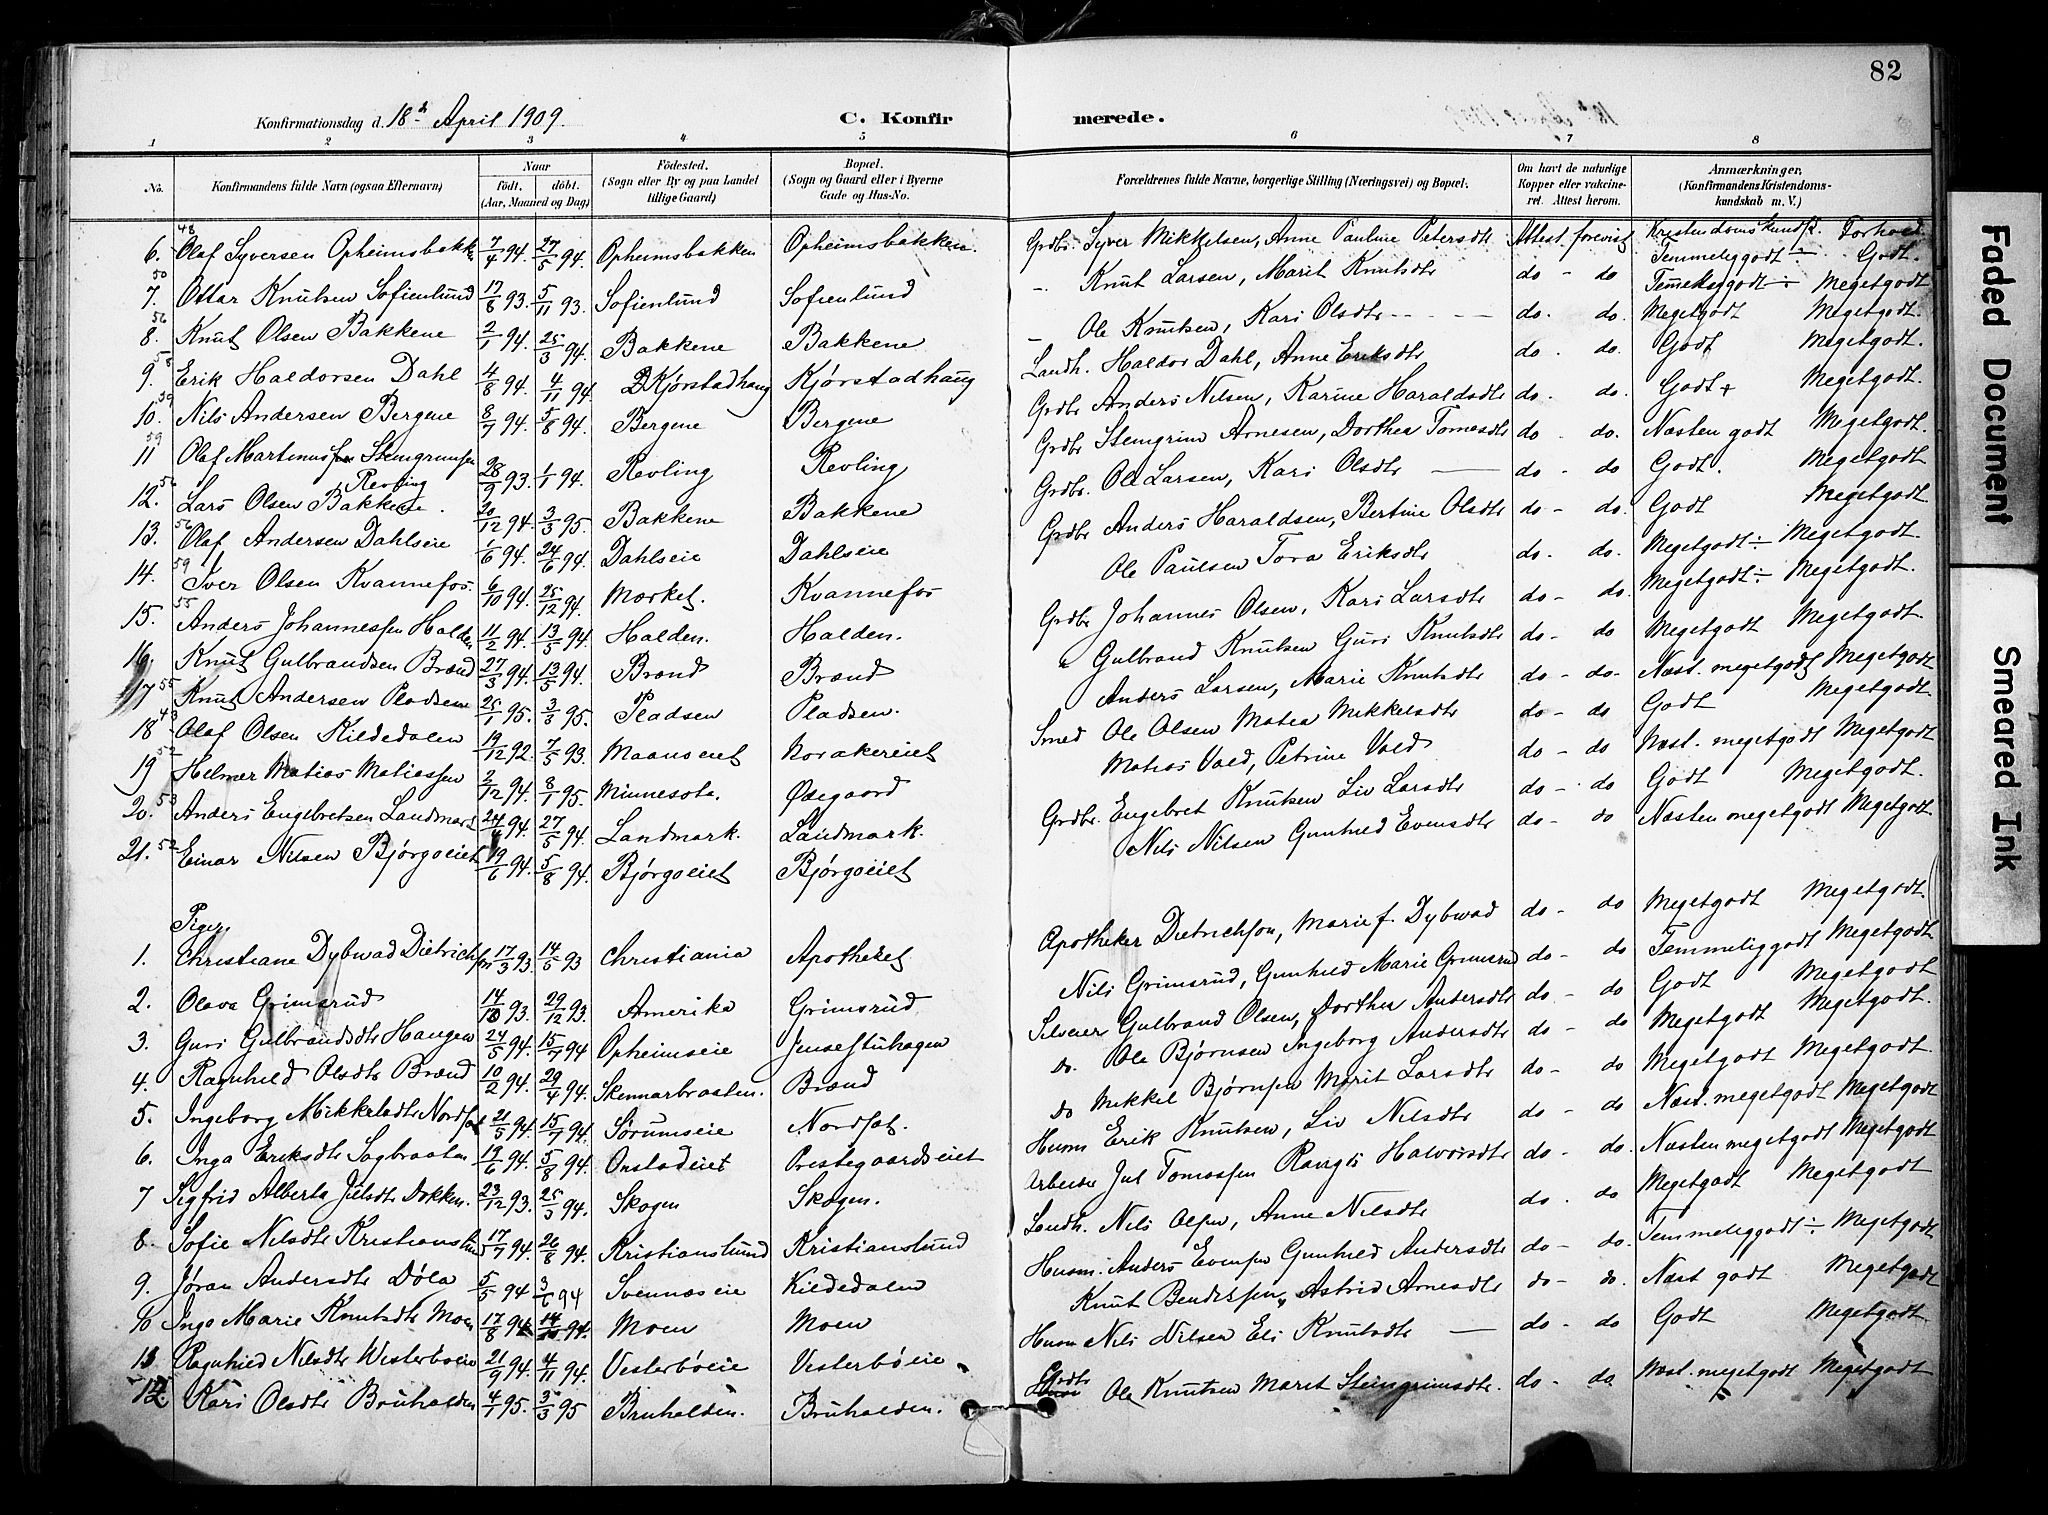 82
Konfirmationsdag d. 18d April 1909.
C. Konfirmerede.
1 2 3 4 5 6 7 8
No. Konfirmandens fulde Navn (ogsaa Efternavn) Naar født. døbt. (Aar, Maaned og Dag) Fødested. (Sogn eller By og paa Landet tillige Gaard) Bopæl. (Sogn og Gaard eller i Byerne Gade og Hus-No. Forældrenes fulde Navne, borgerlige Stilling (Næringsvei) og Bopæl. Om havt de naturlige Kopper eller vakcineret. Attest herom. Anmærkninger, (Konfirmandens Kristendomskundskab m. V.)
Kristendoms Kundsk. Forhold
6. 48 Olaf Syversen Opheimsbakk 7/4 94. 27/5 94. Opheimsbakken Opheimsbakken. Grdbr. Syver Mikkelsen, Anne Pauline Petersdtr Attest forevist Temmeliggodt ÷ Godt.
7. 50 Ottar Knutsen Sofienlund 17/8 93. 5/11 93. Sofienlund Sofienlund - Knut Larsen, Marit Knutsdtr do - do Temmeliggodt ÷ Megetgodt
8. 56 Knut Olsen Bakkene 2/1 94. 25/3 94. Bakkene Bakkene - Ole Knutsen, Kari Olsdtr do. do. Megetgodt Megetgodt.
9. 55 Erik Haldorsen Dahl 4/8 94. 4/11 94. Kjørstadhaug Kjørstadhaug Landh. Haldor Dahl, Anne Eriksdtr do. do. Godt Megetgodt.
10. 59 Nils Andersen Bergene 8/7 94. 5/8 94. Bergene Bergene Grdbr Anders Nilsen, Karine Haraldsdtr do. do. Godt + Megetgodt.
11 59 Olaf Martinus Steingrimsen Revling 28/9 93. 1/1 94. Revling Revling Grdbr Steingrim Arnesen, Dorthea Tomesdtr do. do. Næsten godt Megetgodt.
12. 56 Lars Olsen Bakkene. 20/12 94. 3/3 95. Bakkene Bakkene Grdbr. Ole Larsen, Kari Olsdtr do - do Godt. Megetgodt
13. 56 Olaf Andersen Dahlseie 1/6 94. 24/6 94. Dahlseie Dahlseie Grdbr Anders Haraldsen, Bertine Olsdtr do - do. Godt Megetgodt.
14. 59 Iver Olsen Kvannefos. 6/10 94. 25/12 94. Mørket. Kvannefos Ole Paulsen Tora Eriksdtr do. do. Megetgodt ÷ Megetgodt.
15. 55 Anders Johannessen Halden 11/2 94. 13/5 94. Halden. Halden. Grdbr Johannes Olsen, Kari Larsdtr do - do. Megetgodt ÷ Megetgodt.
16. Knut Gulbrandsen Brænd 27/3 94. 13/5 94. Brænd Brænd " Gulbrand Knutsen Guri Knutsdtr do - do Megetgodt Megetgodt.
17 55 Knut Andersen Pladsen 25/1 95. 3/3 95. Pladsen Pladsen. Anders Larsen, Marie Knutsdtr do - do. Næst. megetgodt Megetgodt
18 43 Olaf Olsen Kildedalen 19/12 92. 7/5 93. Maanseiet Norakereiet Smed Ole Olsen Matea Mikkelsdtr do - do Godt Megetgodt.
19 52 Helmer Matias Matiassen 2/12 94. 8/1 95. Minnesota. Ødegaard Matias Vold, Petrine Vold do - do Næst. megetgodt Megetgodt
20. 53 Anders Engebretsen Landmark 94. 27/5 94. Landmark. Landmark. Grdbr. Engebret Knutsen Liv Larsdtr do - do Godt Megetgodt.
21. 52 Einar Nilsen Bjørgoeiet 19/6 94. 5/8 94. Bjørgoeiet Bjørgoeiet Nils Nilsen Gunhild Evensdtr do - do Næsten megetgodt Megetgodt.
Piger.
1. Christiane Dybwad Dietrichson 17/3 93. 14/5 93 Christiania Apotheket Apotheker Dietrichson, Marie f. Dybwad do - do Megetgodt Megetgodt.
2. Olava Grimsrud 14/10 93. 29/12 93. Amerika Grimsrud Nils Grimsrud, Gunhild Marie Grimsrud do - do Temmeliggodt Megetgodt
3. Guri Gulbrandsdtr Haugen 24/5 94. 15/7 94 Opheimseie Jensestuhagen Gulbrand Olsen, Dorthea Andersdtr do - do Godt Megetgodt
4. Ragnhild Olsdtr Brænd 10/2 94. 29/4 94. Skennarbraaten. Brænd do. Ole Bjørnsen Ingeborg Andersdtr do - do Megetgodt Megetgodt.
5. Ingeborg Mikkelsdtr Nordsæt 21/5 94. 15/7 94. Sørumseie Nordsæt. do Mikkel Bjørnsen Marit Larsdtr do - do Megetgodt Megetgodt.
6. Inga Eriksdtr Sagbraaten 19/6 94. 5/8 94. Onstadeiet Prestegaardseiet Husm Erik Knutsen, Liv Nilsdtr do - do Næst. megetgodt Megetgodt
7 Sigfrid Alberta Julsdtr Dokken. 23/12 93. 25/3 94. Skogen Skogen. Arbeider Jul Tomassen Rangdi Halvorsdtr do - do. Næsten megetgodt Megetgodt
8. Sofie Nilsdtr Kristianslund 17/7 94. 26/8 94. Kristianslund Kristianslund Landh. Nils Olsen, Anne Nilsdtr do. do Megetgodt Megetgodt
9. Jøran Andersdtr Døla 5/5 94 3/6 94 Svennæseie Kildedalen Husm. Anders Evensen Gunhild Andersdtr do - do. Temmeliggodt ÷ Megetgodt
10 Inga Marie Knutsdtr Moen 17/8 94 14/10 94. Moen Moen Knut Bendiksen, Astrid Arnesdtr do - do. Næst godt Megetgodt
11 Ragnhild Nilsdtr Westerbøeie 21/9 94. 4/11 94. Vesterbøeie Vesterbøeie Husm Nils Nilsen Eli Knutsdtr do - do Godt Megetgodt
12 Kari Olsdtr Bruhalden 4/1 95. 3/3 95 Bruhalden. Bruhalden. Ole Knutsen Marit Steingrimsdtr. do - do Næst. megetgodt Megetgodt
Faded Document
Smeared Ink